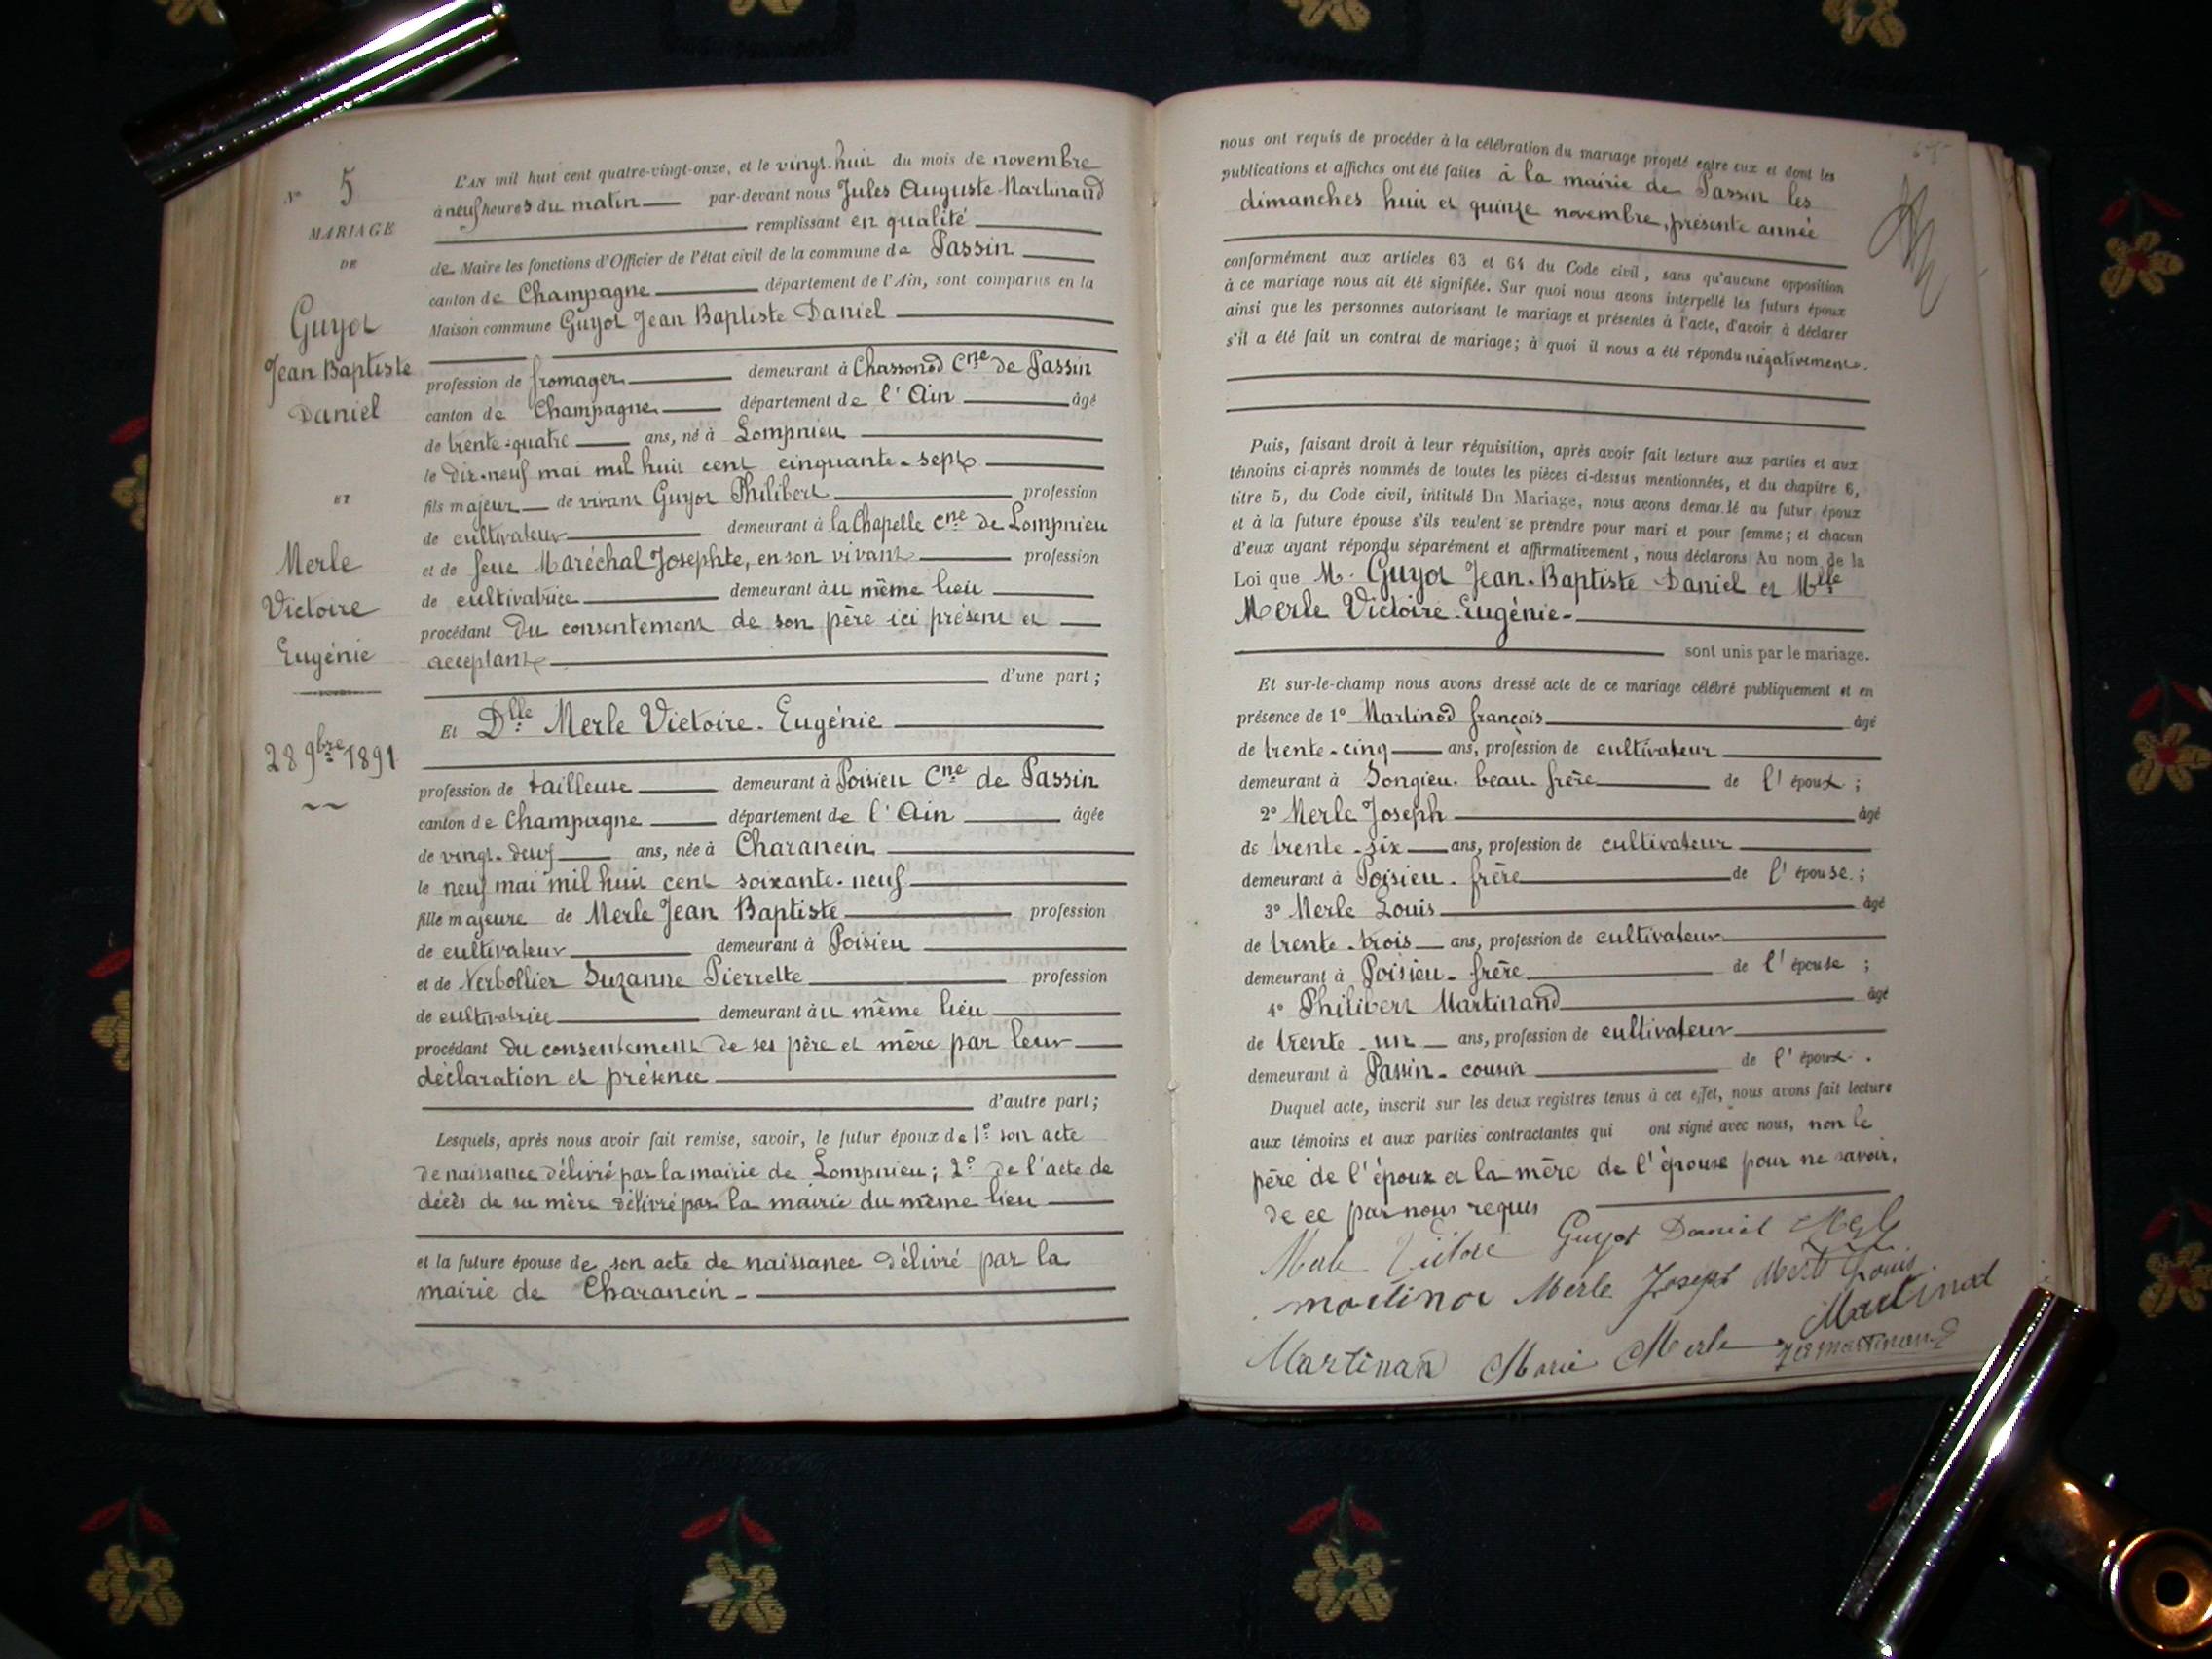 N° 5
MARIAGE
DE
Guyot
Jean Baptiste
Daniel
ET
Merle
Victoire
Eugénie
28 9bre 1891
L'AN mil huit cent quatre-vingt-onze, et le vingt-huit du mois de novembre
à neuf heures du matin par-devant nous Jules Auguste Martinand
remplissant en qualité
de Maire les fonctions d'Officier de l'état civil de la commune de Passin
canton de Champagne département de l'Ain, sont comparus en la
Maison commune Guyot Jean Baptiste Daniel
profession de fromager demeurant à Chassonod Cne de Passin
canton de Champagne département de l'Ain âgé
de trente-quatre ans, né à Lompnieu
le dix-neuf mai mil huit cent cinquante-sept
fils majeur de vivant Guyot Philibert profession
de cultivateur demeurant à la Chapelle Cne de Lompnieu
et de feue Maréchal Josephte, en son vivant profession
de cultivatrice demeurant au même lieu
procédant Du consentement de son père ici présent et
acceptant
d'une part ;
Et Dlle Merle Victoire-Eugénie
profession de tailleuse demeurant à Poisieu Cne de Passin
canton de Champagne département de l'Ain âgée
de vingt-deux ans, née à Charancin
le neuf mai mil huit cent soixante-neuf
fille majeure de Merle Jean Baptiste profession
de cultivateur demeurant à Poisieu
et de Nerbollier Suzanne Pierrette profession
de cultivatrice demeurant au même lieu
procédant du consentement de ses père et mère par leur
déclaration et présence
d'autre part ;
Lesquels, après nous avoir fait remise, savoir, le futur époux de 1° son acte
de naissance délivré par la mairie de Lompnieu ; 2° de l'acte de
décès de sa mère délivré par la mairie du même lieu
et la future épouse de son acte de naissance délivré par la
mairie de Charancin -
nous ont requis de procéder à la célébration du mariage projeté entre eux et dont les
publications et affiches ont été faites à la mairie de Passin les
dimanches huit et quinze novembre, présente année
conformément aux articles 63 et 64 du Code civil, sans qu'aucune opposition
à ce mariage nous ait été signifiée. Sur quoi nous avons interpellé les futurs époux
ainsi que les personnes autorisant le mariage et présentes à l'acte, d'avoir à déclarer
s'il a été fait un contrat de mariage ; à quoi il nous a été répondu négativement.
Puis, faisant droit à leur réquisition, après avoir fait lecture aux parties et aux
témoins ci-après nommés de toutes les pièces ci-dessus mentionnées, et du chapitre 6,
titre 5, du Code civil, intitulé Du Mariage, nous avons demandé au futur époux
et à la future épouse s'ils veulent se prendre pour mari et pour femme ; et chacun
d'eux ayant répondu séparément et affirmativement, nous déclarons Au nom de la
Loi que M. Guyot Jean-Baptiste Daniel et Mlle
Merle Victoire-Eugénie-
sont unis par le mariage.
Et sur-le-champ nous avons dressé acte de ce mariage célébré publiquement et en
présence de 1° Martinod françois âgé
de trente-cinq ans, profession de cultivateur
demeurant à Songieu-beau-frère de l'époux ;
2° Merle Joseph âgé
de trente-six ans, profession de cultivateur
demeurant à Poisieu-frère de l'épouse ;
3° Merle Louis âgé
de trente-trois ans, profession de cultivateur
demeurant à Poisieu-frère de l'épouse ;
4° Philibert Martinand âgé
de trente-un ans, profession de cultivateur
demeurant à Passin-cousin de l'époux.
Duquel acte, inscrit sur les deux registres tenus à cet effet, nous avons fait lecture
aux témoins et aux parties contractantes qui ont signé avec nous, non le
père de l'époux et la mère de l'épouse pour ne savoir,
de ce par nous requis
Merle Victoire Guyot Daniel Merle
Martinod Merle Joseph Merle Louis
Martinod
Martinand Marie Merle